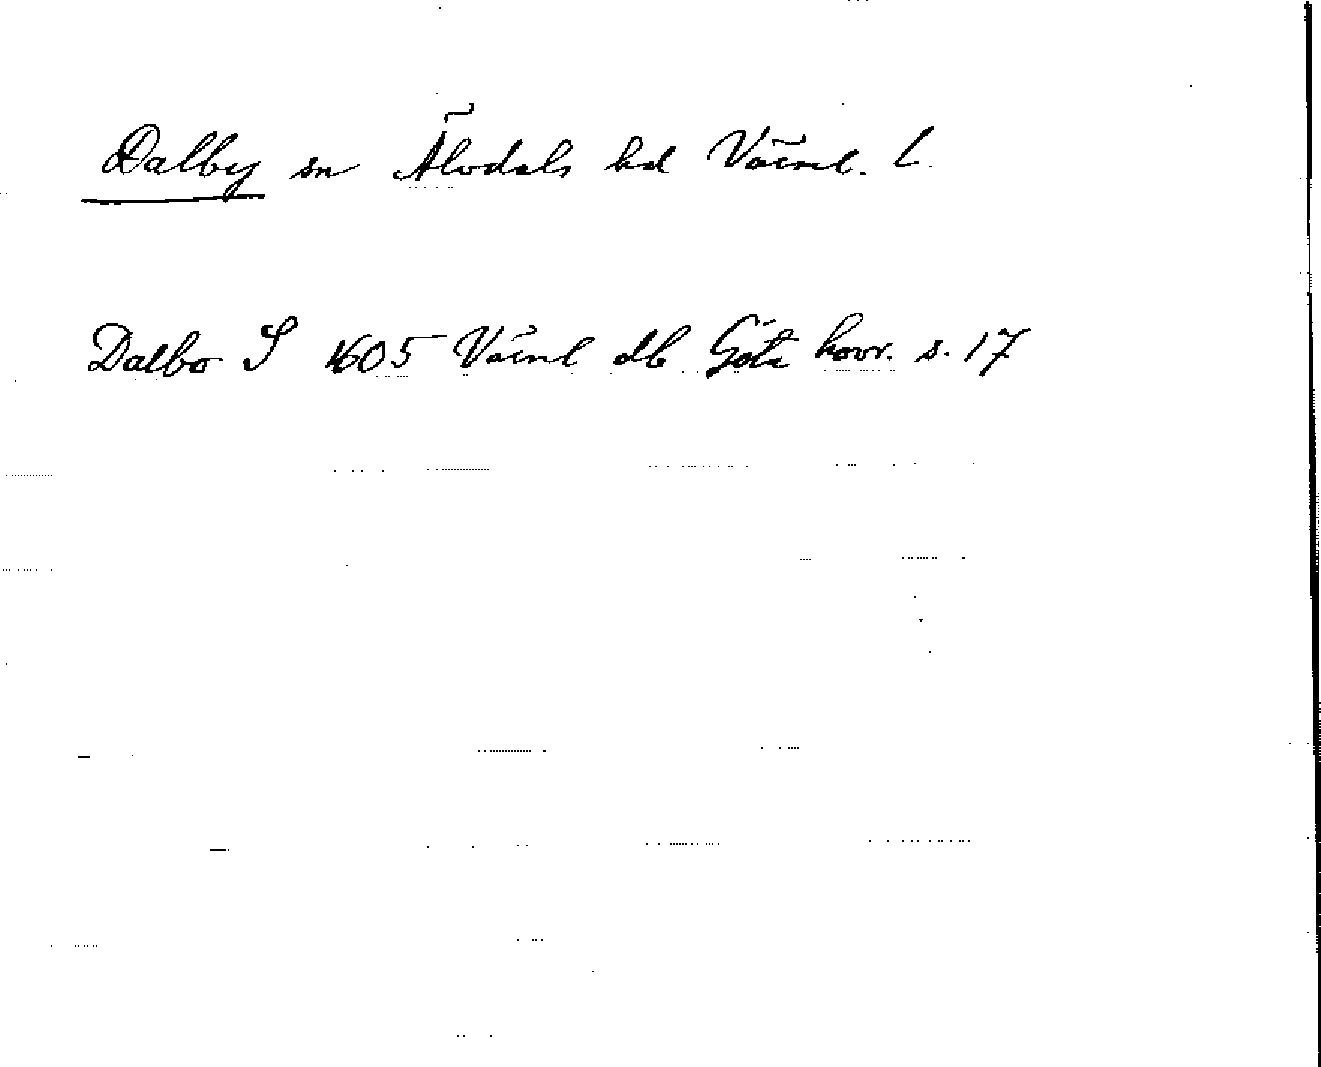 Dalby sn Älvdals hd Värml. l.
Dalbo S 1605 Värml db Göta hovr. s. 17